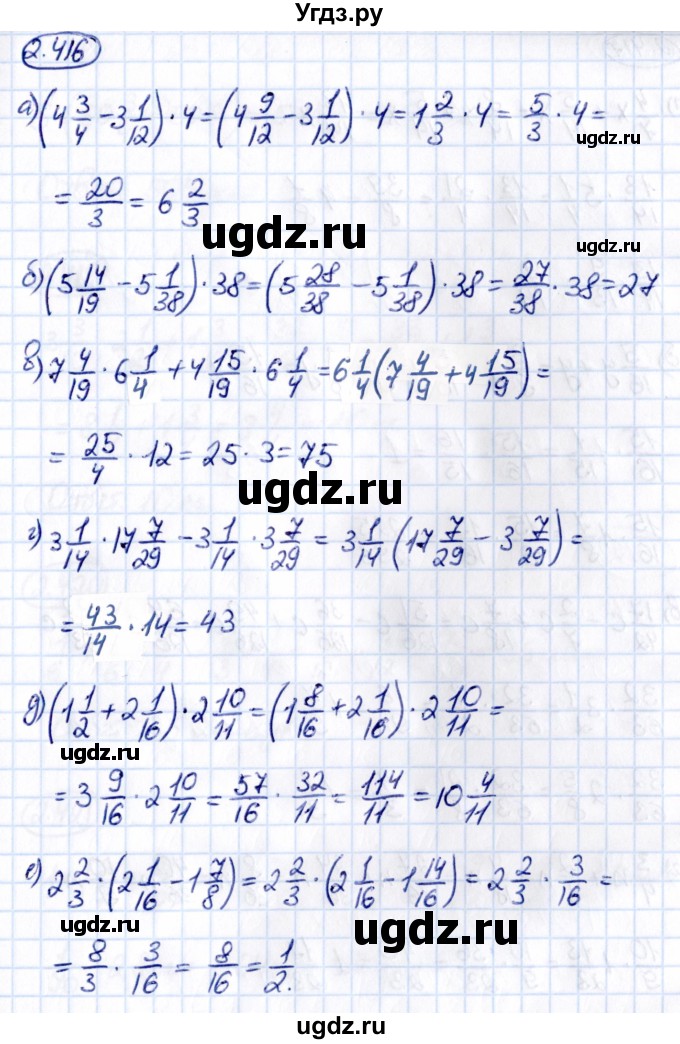 Угдз.ру
2.416
а) (4 3/4 − 3 1/12) · 4 = (4 9/12 − 3 1/12) · 4 = 1 2/3 · 4 = 5/3 · 4 =
ugdz.ru
= 20/3 = 6 2/3
ugdz.ru
ugdz.ru
б) (5 14/19 − 5 1/38) · 38 = (5 28/38 − 5 1/38) · 38 = 27/38 · 38 = 27
в) 7 4/19 · 6 1/4 + 4 15/19 · 6 1/4 = 6 1/4 (7 4/19 + 4 15/19) =
= 25/4 · 12 = 25 · 3 = 75
ugdz.ru
г) 3 1/14 · 17 7/29 − 3 1/14 · 3 7/29 = 3 1/14 (17 7/29 − 3 7/29) =
= 43/14 · 14 = 43
д) (1 1/2 + 2 1/16) · 2 10/11 = (1 8/16 + 2 1/16) · 2 10/11 =
ugdz.ru
= 3 9/16 · 2 10/11 = 57/16 · 32/11 = 114/11 = 10 4/11
ugdz.ru
е) 2 2/3 · (2 1/16 − 1 7/8) = 2 2/3 · (2 1/16 − 1 14/16) = 2 2/3 · 3/16 =
= 8/3 · 3/16 = 8/16 = 1/2.
ugdz.ru
ugdz.ru